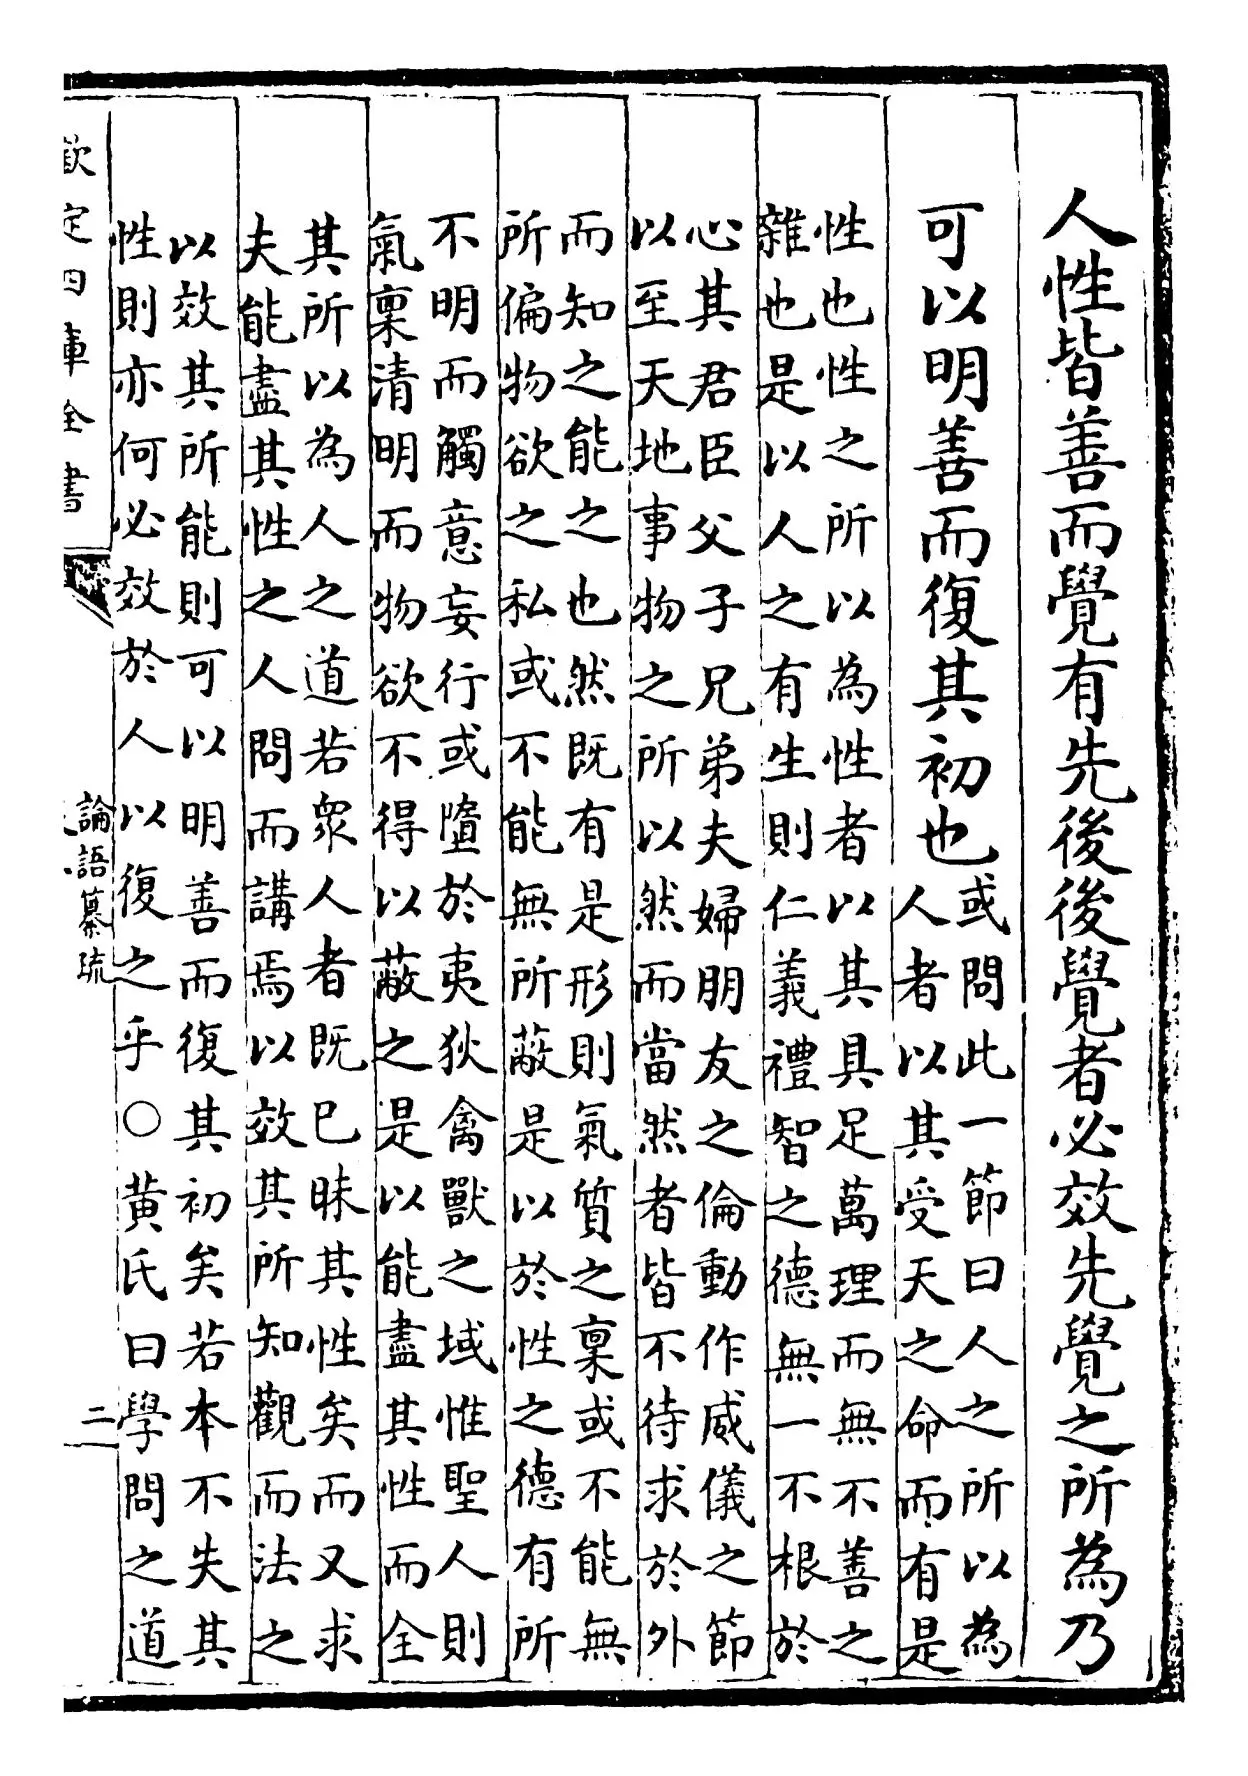 人性皆善而覺有先後後覺者必效先覺之所為乃
可以明善而復其初也
或問此一節曰人之所以為
人者以其受天之命而有是
性也性之所以為性者以其具足萬理而無不善之
雜也是以人之有生則仁義禮智之德無一不根於
心其君臣父子兄弟夫婦朋友之倫動作威儀之節
以至天地事物之所以然而當然者皆不待求於外
而知之能之也然既有是形則氣質之稟或不能無
所偏物欲之私或不能無所蔽是以於性之德有所
不明而觸意妄行或墮於夷狄禽獸之域惟聖人則
氣稟清明而物欲不得以蔽之是以能盡其性而全
其所以為人之道若眾人者既已昧其性矣而又求
夫能盡其性之人問而講焉以效其所知觀而法之
以效其所能則可以明善而復其初矣若本不失其
性則亦何必效於人以復之乎○黃氏曰學問之道
欽定四庫全書
論語纂疏
二